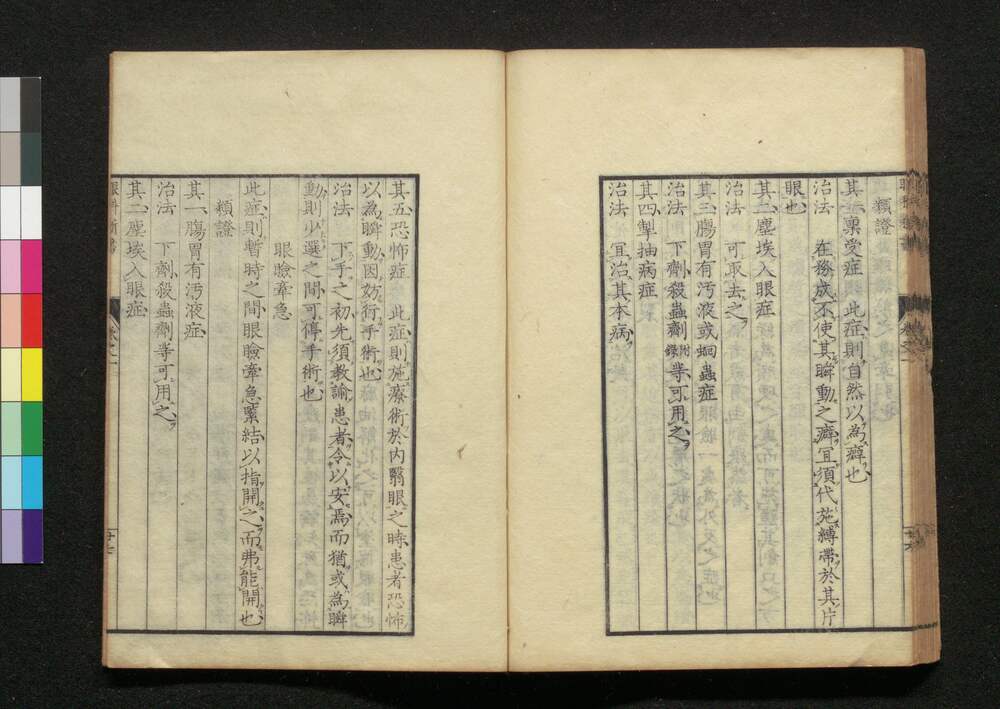 類證
其一稟受症 此症則自然以為癖也
治法 在務成不使其瞬動之癖宜須代施縛帶於其片
眼也
其二塵埃入眼症
治法 可取去之
其三腸胃有汚液或蛔蟲症
治法 下劑殺蟲劑附錄等可用之
其四掣抽病症
治法 宜治其本病
其五恐怖症 此症則施療術於內翳眼之時患者恐怖
以為瞬動因妨術手術也
治法 下手之初先須教諭患者令以安焉而猶或為瞬
動則少選之間可停手術也
眼瞼牽急
此症則暫時之間眼瞼牽急緊結以指開之而弗能開也
類證
其一腸胃有汚液症
治法 下劑殺蟲劑等可用之
其二塵埃入眼症
眼科新書 卷之一 廿七